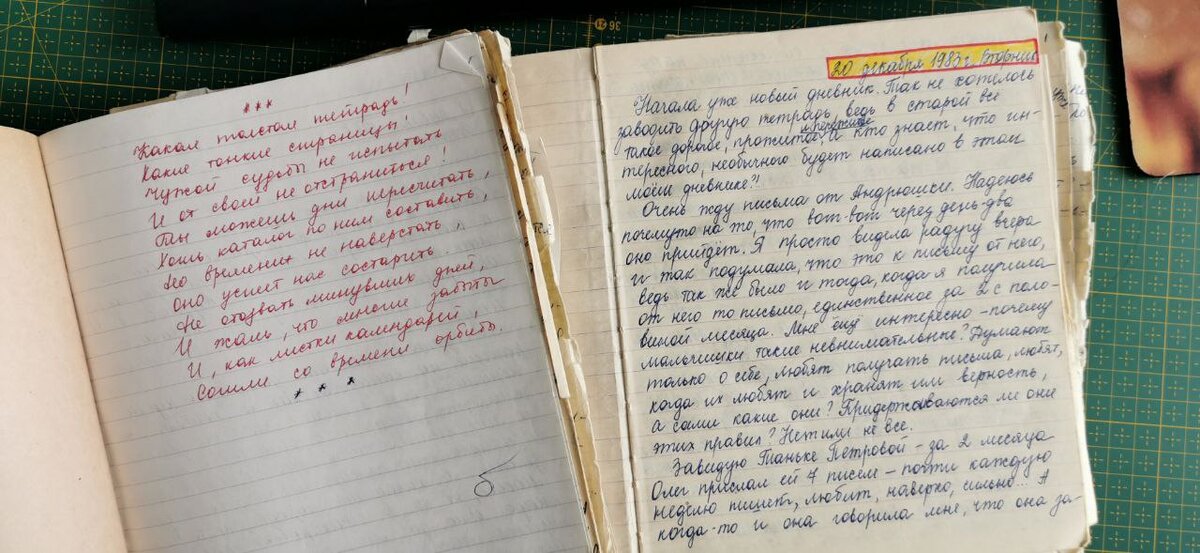 * * *
Какая толстая тетрадь!
Какие тонкие страницы!
Чужой судьбы не испытать
И от своей не отстраниться!
Ты можешь дни пересчитать,
Хоть каталог по ним составить,
Но времени не наверстать,
Оно успеет нас состарить.
Не отозвать минувших дней,
И жаль, что многие забыты
И, как листки календарей,
Сошли со времени орбиты.
* * *
20 декабря 1983 г. Вторник
Начала уже новый дневник. Так не хотелось
заводить другую тетрадь, ведь в старой всё
такое дорогое, прожитое, пережитое
и кто знает, что ин-
тересного, необычного будет написано в этом
моём дневнике?!
Очень жду письма от Андрюшки. Надеюсь
почему-то на то, что вот-вот через день-два
оно прийдёт. Я просто видела радугу вчера
и так подумала, что это к письму от него,
ведь так же было и тогда, когда я получила
от него то письмо, единственное за 2 с поло-
виной месяца. Мне ещё интересно - почему
мальчишки такие невнимательные? Думают
только о себе, любят получать письма, любят,
когда их любят и хранят им верность,
а сами какие они? Придерживаются ли они
этих правил? Нет или не все.
Завидую Таньке Петровой - за 2 месяца
Олег прислал ей 7 писем - почти каждую
неделю пишет, любит, наверно, сильно... А
когда-то и она говорила мне, что она за-
36